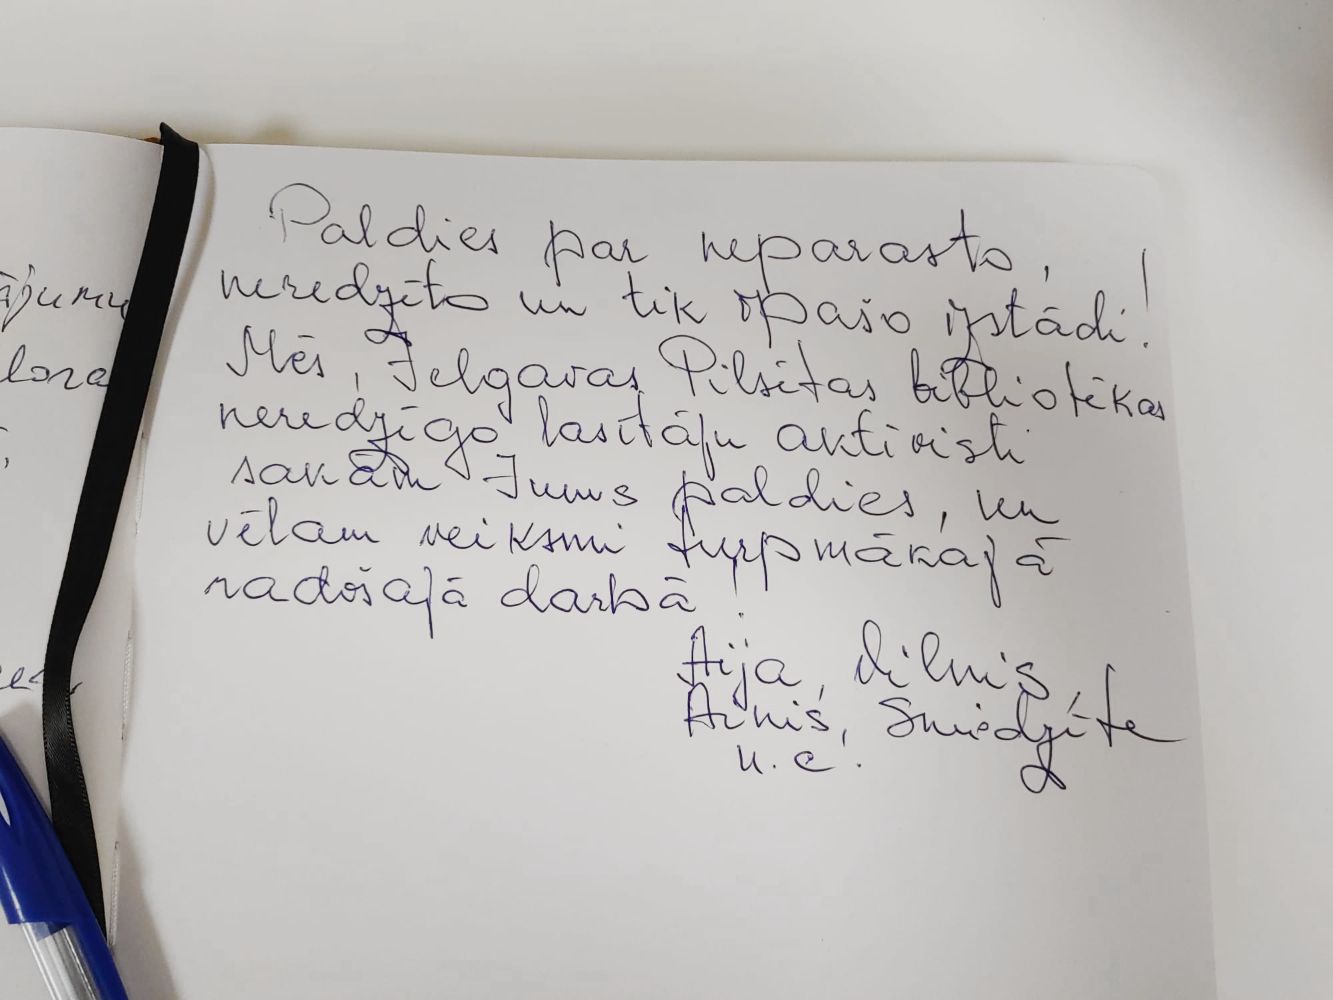 Paldies par neparasto,
neredzēto un tik īpašo izstādi!
Mēs, Jelgavas Pilsētas bibliotēkas
neredzīgo lasītāju aktīvisti
sakām Jums paldies, un
vēlam veiksmi turpmākajā
radošajā darbā!
Aija, Dilnis,
Arnis, Sniedzīte
u.c.